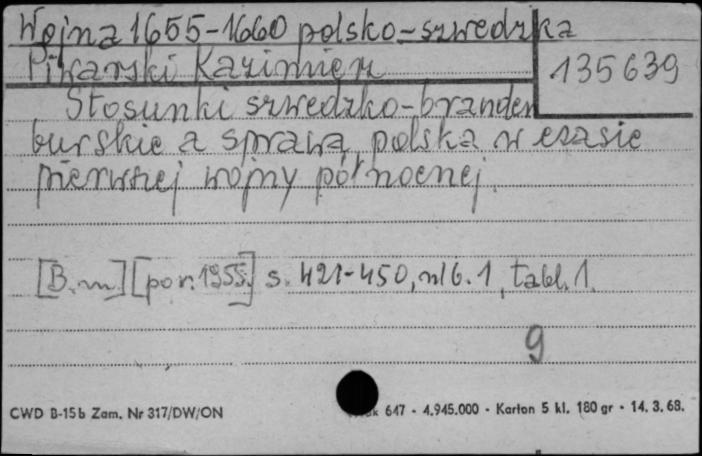 Wojna 1655-1660 polsko-szwedzka
Piwarski Kazimierz
135639
Stosunki szwedzko-branden
burskie a sprawa polska w czasie
pierwszej wojny północnej.
[B.m] [por. 1955.] s. 421-450, nlb. 1, tabl. 1.
9
CWD B-15b Zam. Nr 317/DW/ON
647 - 4.945.000 - Karton 5 kl. 180 gr - 14. 3. 68.